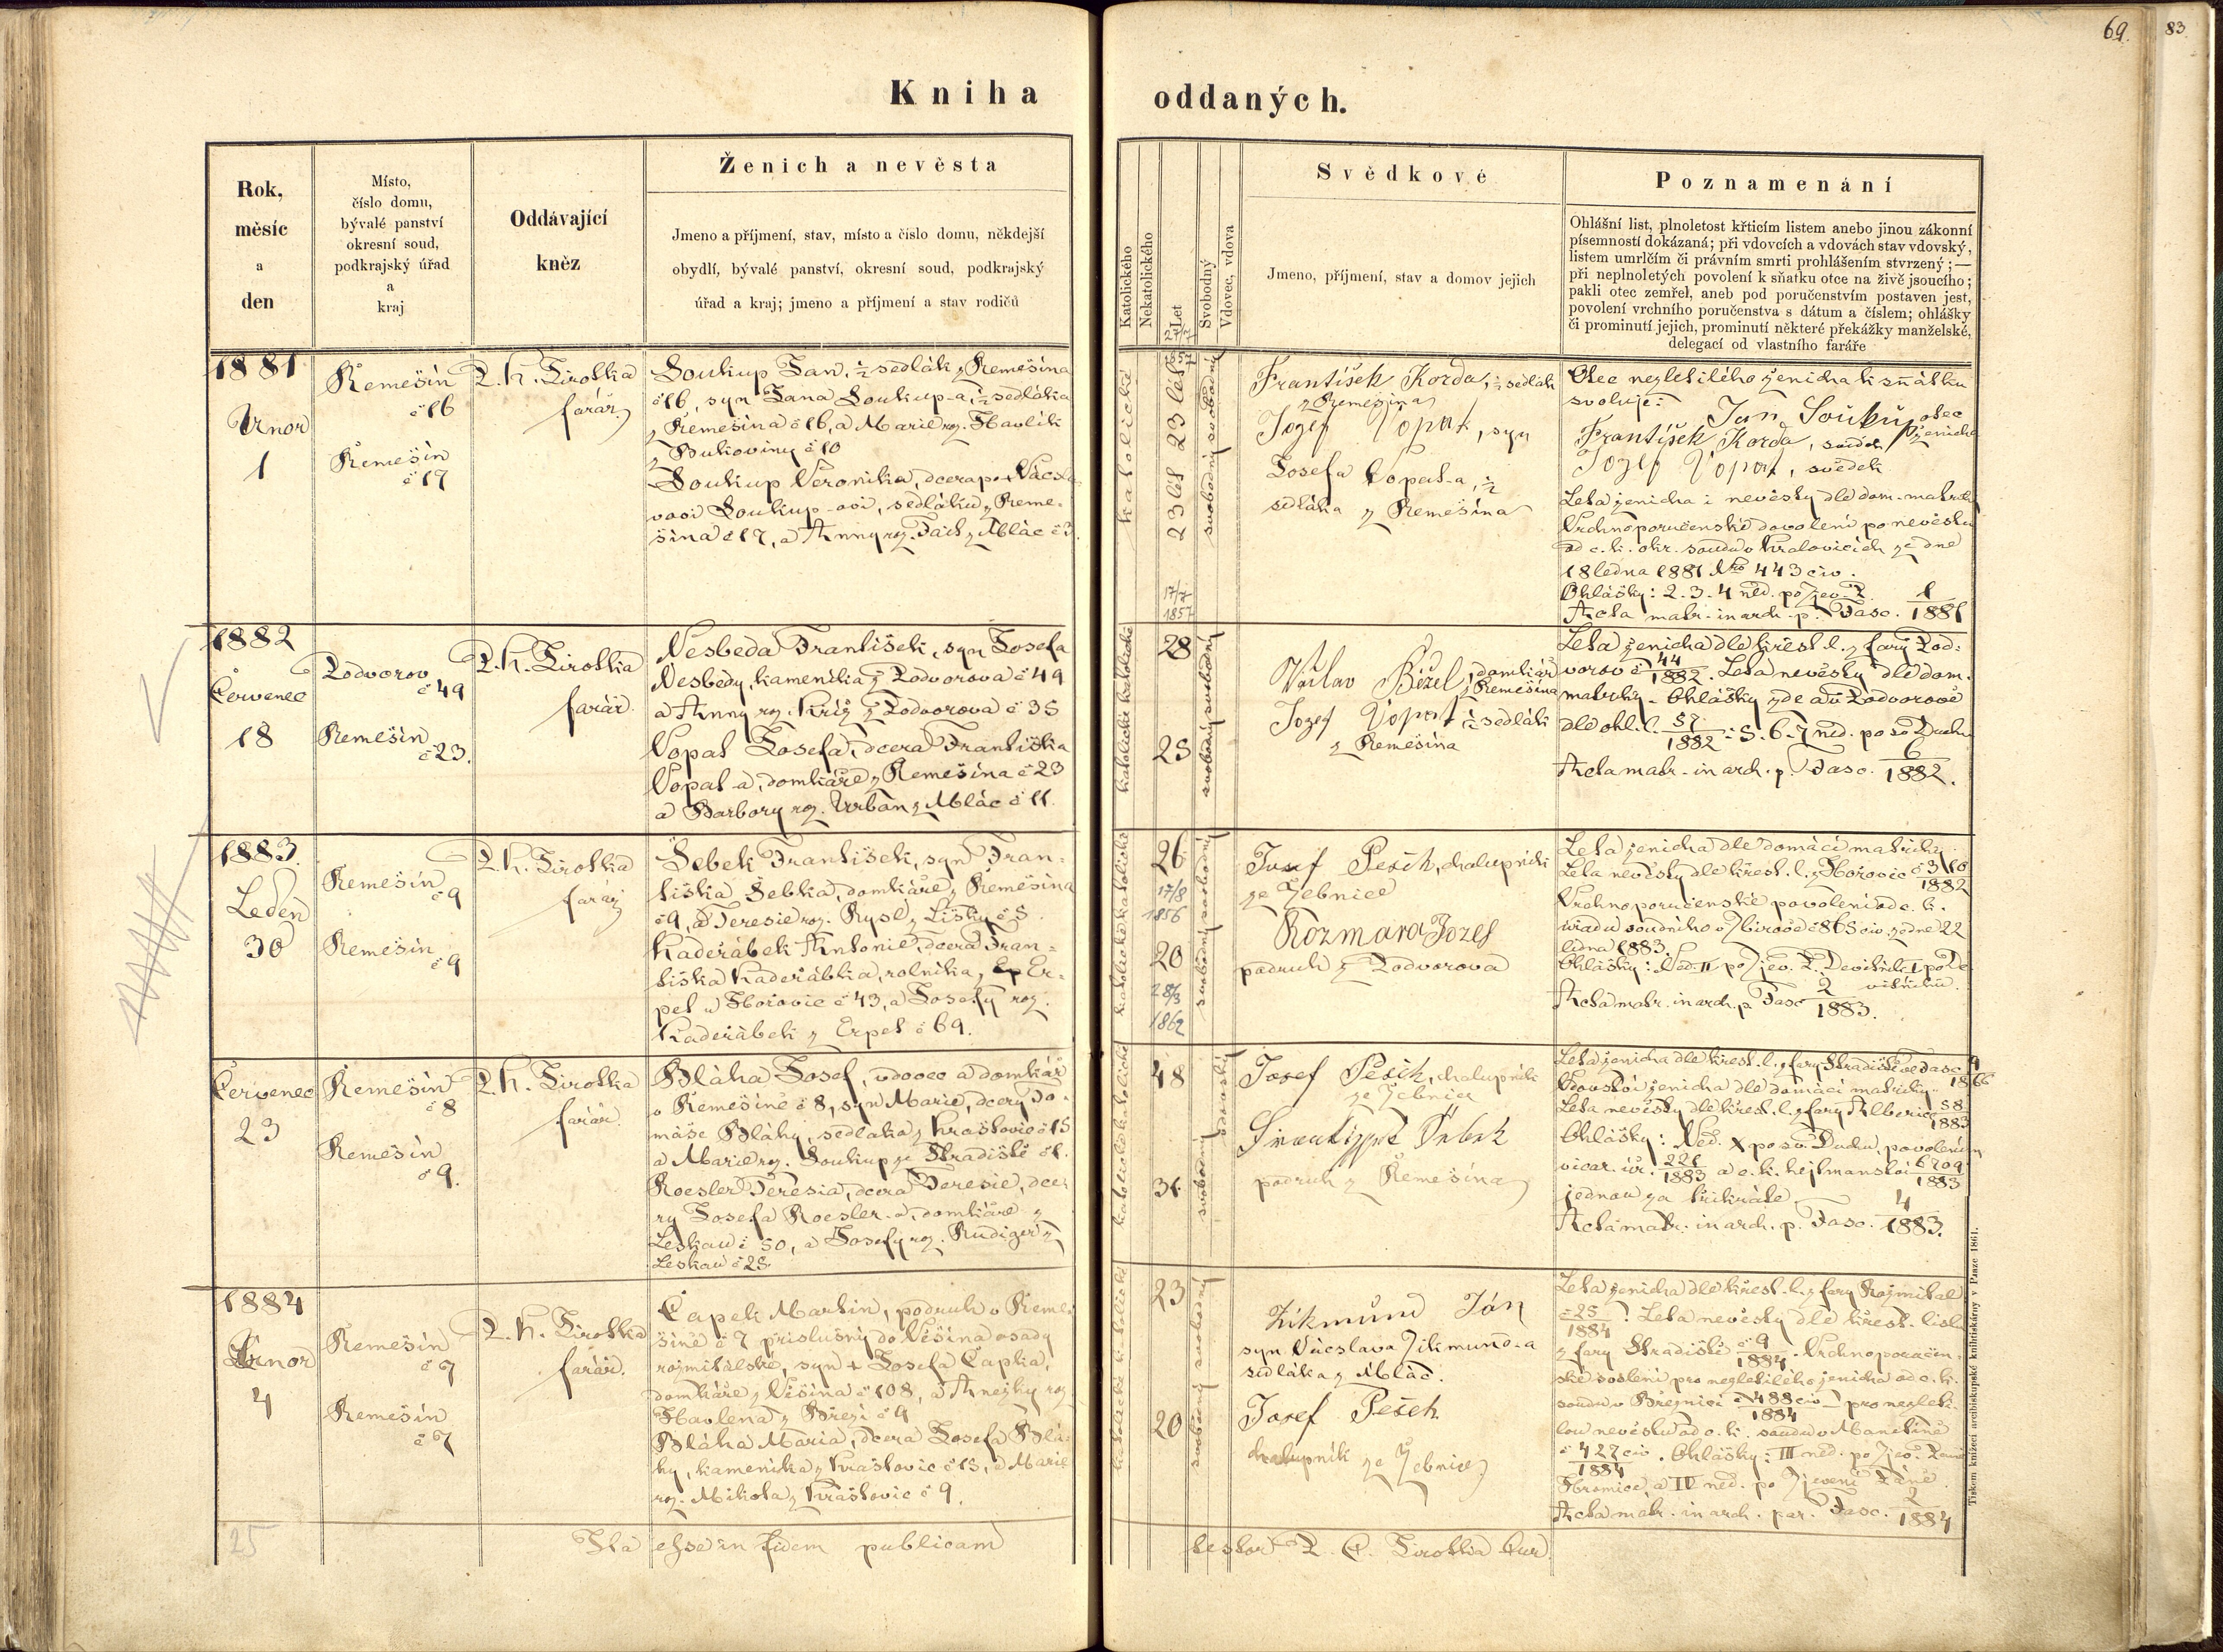 69.
83
Kniha oddaných.
Rok,
měsíc
a
den
Místo,
číslo domu,
bývalé panství
okresní soud,
podkrajský úřad
a
kraj
Oddávající
kněz
Ženich a nevěsta
Jmeno a příjmení, stav, místo a číslo domu, někdejší
obydlí, bývalé panství, okresní soud, podkrajský
úřad a kraj; jmeno a příjmení a stav rodičů
Katolického
Nekatolického
Let
Svobodný
Vdovec, vdova
Svědkové
Jmeno, příjmení, stav a domov jejich
Poznamenání
Ohlášní list, plnoletost křticím listem anebo jinou zákonní
písemností dokázaná; při vdovcích a vdovách stav vdovský,
listem umrlčím či právním smrti prohlášením stvrzený;—
při neplnoletých povolení k sňatku otce na živě jsoucího;
pakli otec zemřel, aneb pod poručenstvím postaven jest,
povolení vrchního poručenstva s dátum a číslem; ohlášky
či prominutí jejich, prominutí některé překážky manželské,
delegací od vlastního faráře
1881
Únor
1
Řemešín
č 16
Řemešín
č 17
P. K. Sirotka
farář
Soukup Jan, ½ sedlák z Řemešína
č 16, syn Jana Soukup-a, ½ sedláka
z Řemešína č 16, a Marie roz. Havlík
z Bukoviny č 10
Soukup Veronika, dcera po + Václa-
vovi Soukup-ovi, sedláku z Řeme-
šína č 17, a Anny roz. z Mlác č 3.
katolické
23 let 23 let
svobodný svobodný
František Korda, ½ sedlák
z Řemešína
Jozef Vopat, syn
Josefa Vopat-a, ½
sedláka z Řemešína
Otec nezletilého ženicha k sňatku
svoluje:
Jan Soukup otec ženicha
František Korda, svědek
Jozef Vopat, svědek
Leta ženicha i nevěsty dle dom. matriky
Vrchnoporučenské dovolení pro nevěstu
od c. k. okr. soudu v Kralovicích ze dne
18 ledna 1881 Nro 443 civ.
Ohlášky: 2. 3. 4 ned. po Zjev. P.
Acta matr. in arch. p. Fasc. 1/1881
1882
Červenec
18
Podvorov
č 49
Řemešín
č 23.
P. K. Sirotka
farář.
Nesbeda František, syn Josefa
Nesbedy, kameníka z Podvorova č 49
a Anny roz. Kříž z Podvorova č 35
Vopat Josefa, dcera Františka
Vopat-a, domkáře z Řemešína č 23
a Barbory roz. Urban z Mlác č 11.
17/7
1857
28
25
katolické katolické
svobodný svobodný
Václav Bížel, domkář
z Řemešína
Jozef Vopat ½ sedlák
z Řemešína
Leta ženicha dle křest. l. z fary Pod-
vorov č 44/1882. Leta nevěsty dle dom.
matriky. Ohlášky zde a v Podvorově
dle ohl. l. 57/1882: 5. 6. 7 ned. po sv Duchu
Acta matr. in arch. p. Fasc. 6/1882.
1883.
Leden
30
Řemešín
č 9
Řemešín
č 9
P. K. Sirotka
farář
Šebek František, syn Fran-
tiška Šebka, domkáře z Řemešína
č 9, a Teresie roz. Rysl z Líšky č 5.
Kadeřábek Antonie, dcera Fran-
tiška Kadeřábka, rolníka z Er-
pet u Hořovic č 43, a Josefy roz.
Kadeřábek z Erpet č 69.
26
17/8
1856
20
28/3
1862
katolické katolické
svobodný svobodný
Josef Pešík, chalupník
ze Žebnice
Rozmara Jozef
podruh z Podvorova
Leta ženicha dle domácí matriky
Leta nevěsty dle křest. l. z Hořovic č 310/1882
Vrchnoporučenské povolení od c. k.
úřadu soudního v Zbirově č 865 civ. ze dne 22
ledna 1883.
Ohlášky: Ned. II po Zjev. P. Devítník I po De-
vítníku.
Acta matr. in arch. p. Fasc 2/1883.
Červenec
23
Řemešín
č 8
Řemešín
č 9.
P. K. Sirotka
farář.
Bláha Josef, vdovec a domkář
v Řemešíně č 8, syn Marie, dcery To-
máše Bláhy, sedláka z Hrašťovic č 15
a Marie roz. Soukup ze Hradiště č 1.
Roesler Teresia, dcera Teresie, dce-
ry Josefa Roesler-a, domkáře z
Leskau č 50, a Josefy roz. Rudiger z
Leskau č 25.
48
31
katolické katolické
svobodný
vdovský
Josef Pešík, chalupník
ze Žebnice
podruh z Řemešína
Leta ženicha dle křest. l. z fary Hradiště
Vdovství ženicha dle domácí matriky.
Leta nevěsty dle křest. l. z fary Alberic 58/1883
Ohlášky: Ned. X po sv. Duchu, povolením
vicar. úř. 221/1883 a c. k. hejtmanství 6709/1883
jednou za třikráte
Acta matr. in arch. p. Fasc. 4/1883.
1884
Únor
4
Řemešín
č 7
Řemešín
č 7
P. K. Sirotka
farář.
Čapek Martin, podruh v Řeme-
šíně č 7 příslušný do Věšína osady
rožmitálské, syn + Josefa Čapka,
domkáře z Věšína č 108, a Anežky roz
Havlena z Březí č 9
Bláha Maria, dcera Josefa Blá-
hy, kameníka z Hrašťovic č 15, a Marie
roz. Mikota z Hrašťovic č 9.
23
20
katolické katolické
svobodný svobodný
Zikmund Ján
syn Václava Zikmund-a
sedláka z Mlác.
Josef Pešek
chalupník ze Žebnice
Leta ženicha dle křest. l. z fary Rožmitál
č 25/1884. Leta nevěsty dle křest. listu
z fary Hradiště č 9/1884. Vrchnoporučen-
ské svolení pro nezletilého ženicha od c. k.
soudu v Březnici č 488 civ/1884 pro nezleti-
lou nevěstu od c. k. soudu v Manětíně
č 427 civ/1884. Ohlášky: III ned. po Zjev. Páně
Hromice, a IV ned. po Zjevení Páně.
Acta matr. in arch. par. Fasc. 2/1884
25
Ita esse in fidem publicam
testor P. C. Sirotka Cur.
Tiskem knížecí arcibiskupské knihtiskárny v Praze 1861.